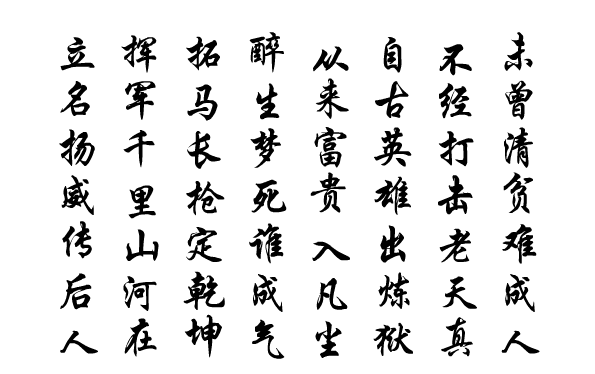 未曾清贫难成人
不经打击老天真
自古英雄出炼狱
从来富贵入凡尘
醉生梦死谁成气
拓马长枪定乾坤
挥军千里山河在
立名扬威传后人